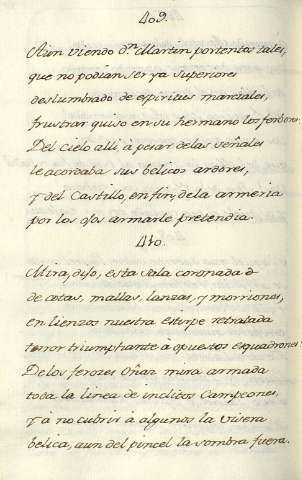 409.
Aun viendo Dn. Martin portentos tales,
que no podian ser ya superiores
deslumbrado de espiritus marciales,
frustrar quiso en su hermano los fervores.
Del Cielo alli à pesar de las señales
le acordaba sus belicos ardores,
Y del Castillo, en fin, de la armeria
por los ojos armarle pretendia.
410.
Mira, dijo, esta Sala coronada d
de cotas, mallas, lanzas, y morriones,
en lienzos nuestra estirpe retratada
terror triumphante à opuestos esquadrones.
De los feroces Oñaz mira armada
toda la linea de inclitos Campeones,
Y à no cubrir à algunos la visera
belica, aun del pincel la sombra fuera.